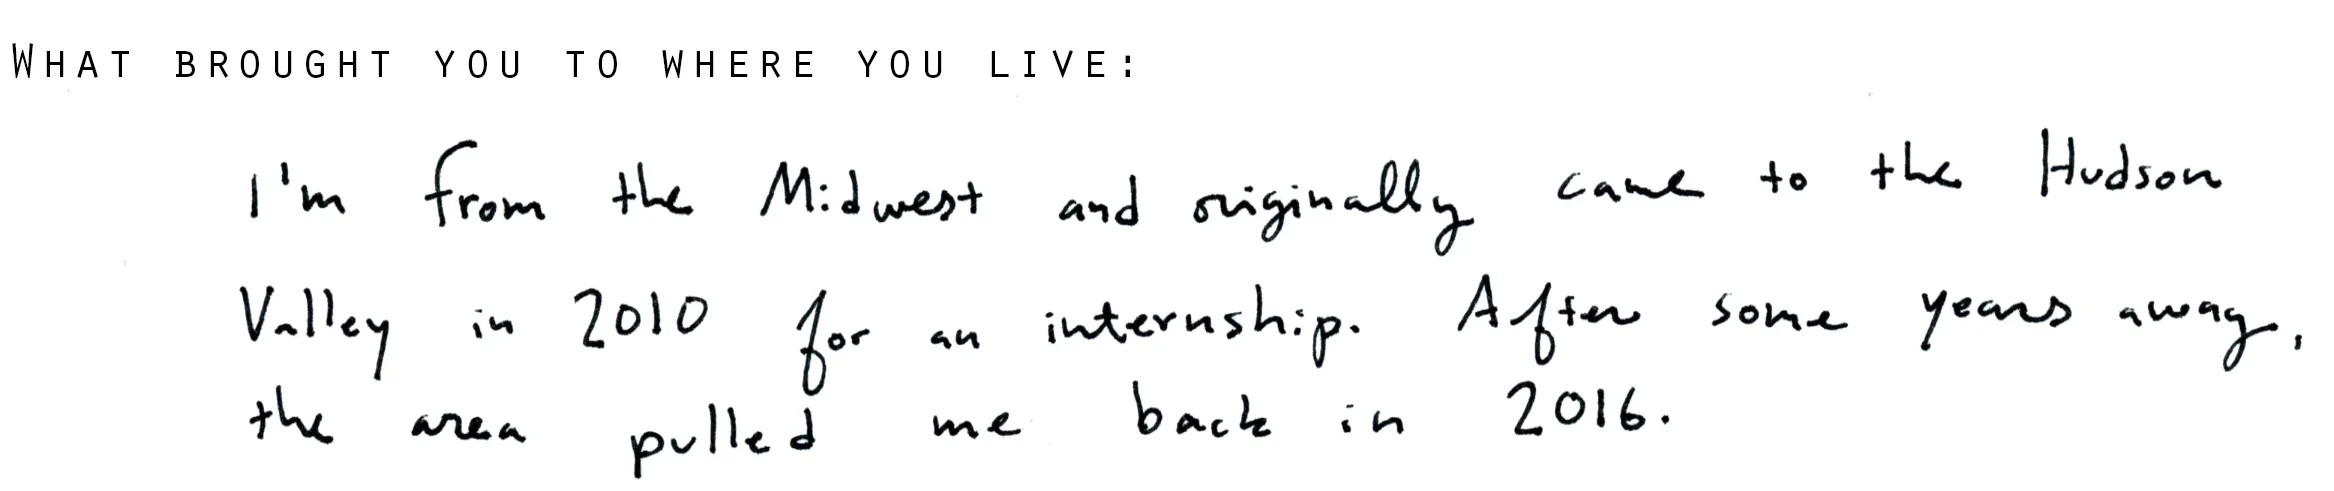 WHAT BROUGHT YOU TO WHERE YOU LIVE:
I'm from the Midwest and originally came to the Hudson
Valley in 2010 for an internship. After some years away,
the area pulled me back in 2016.